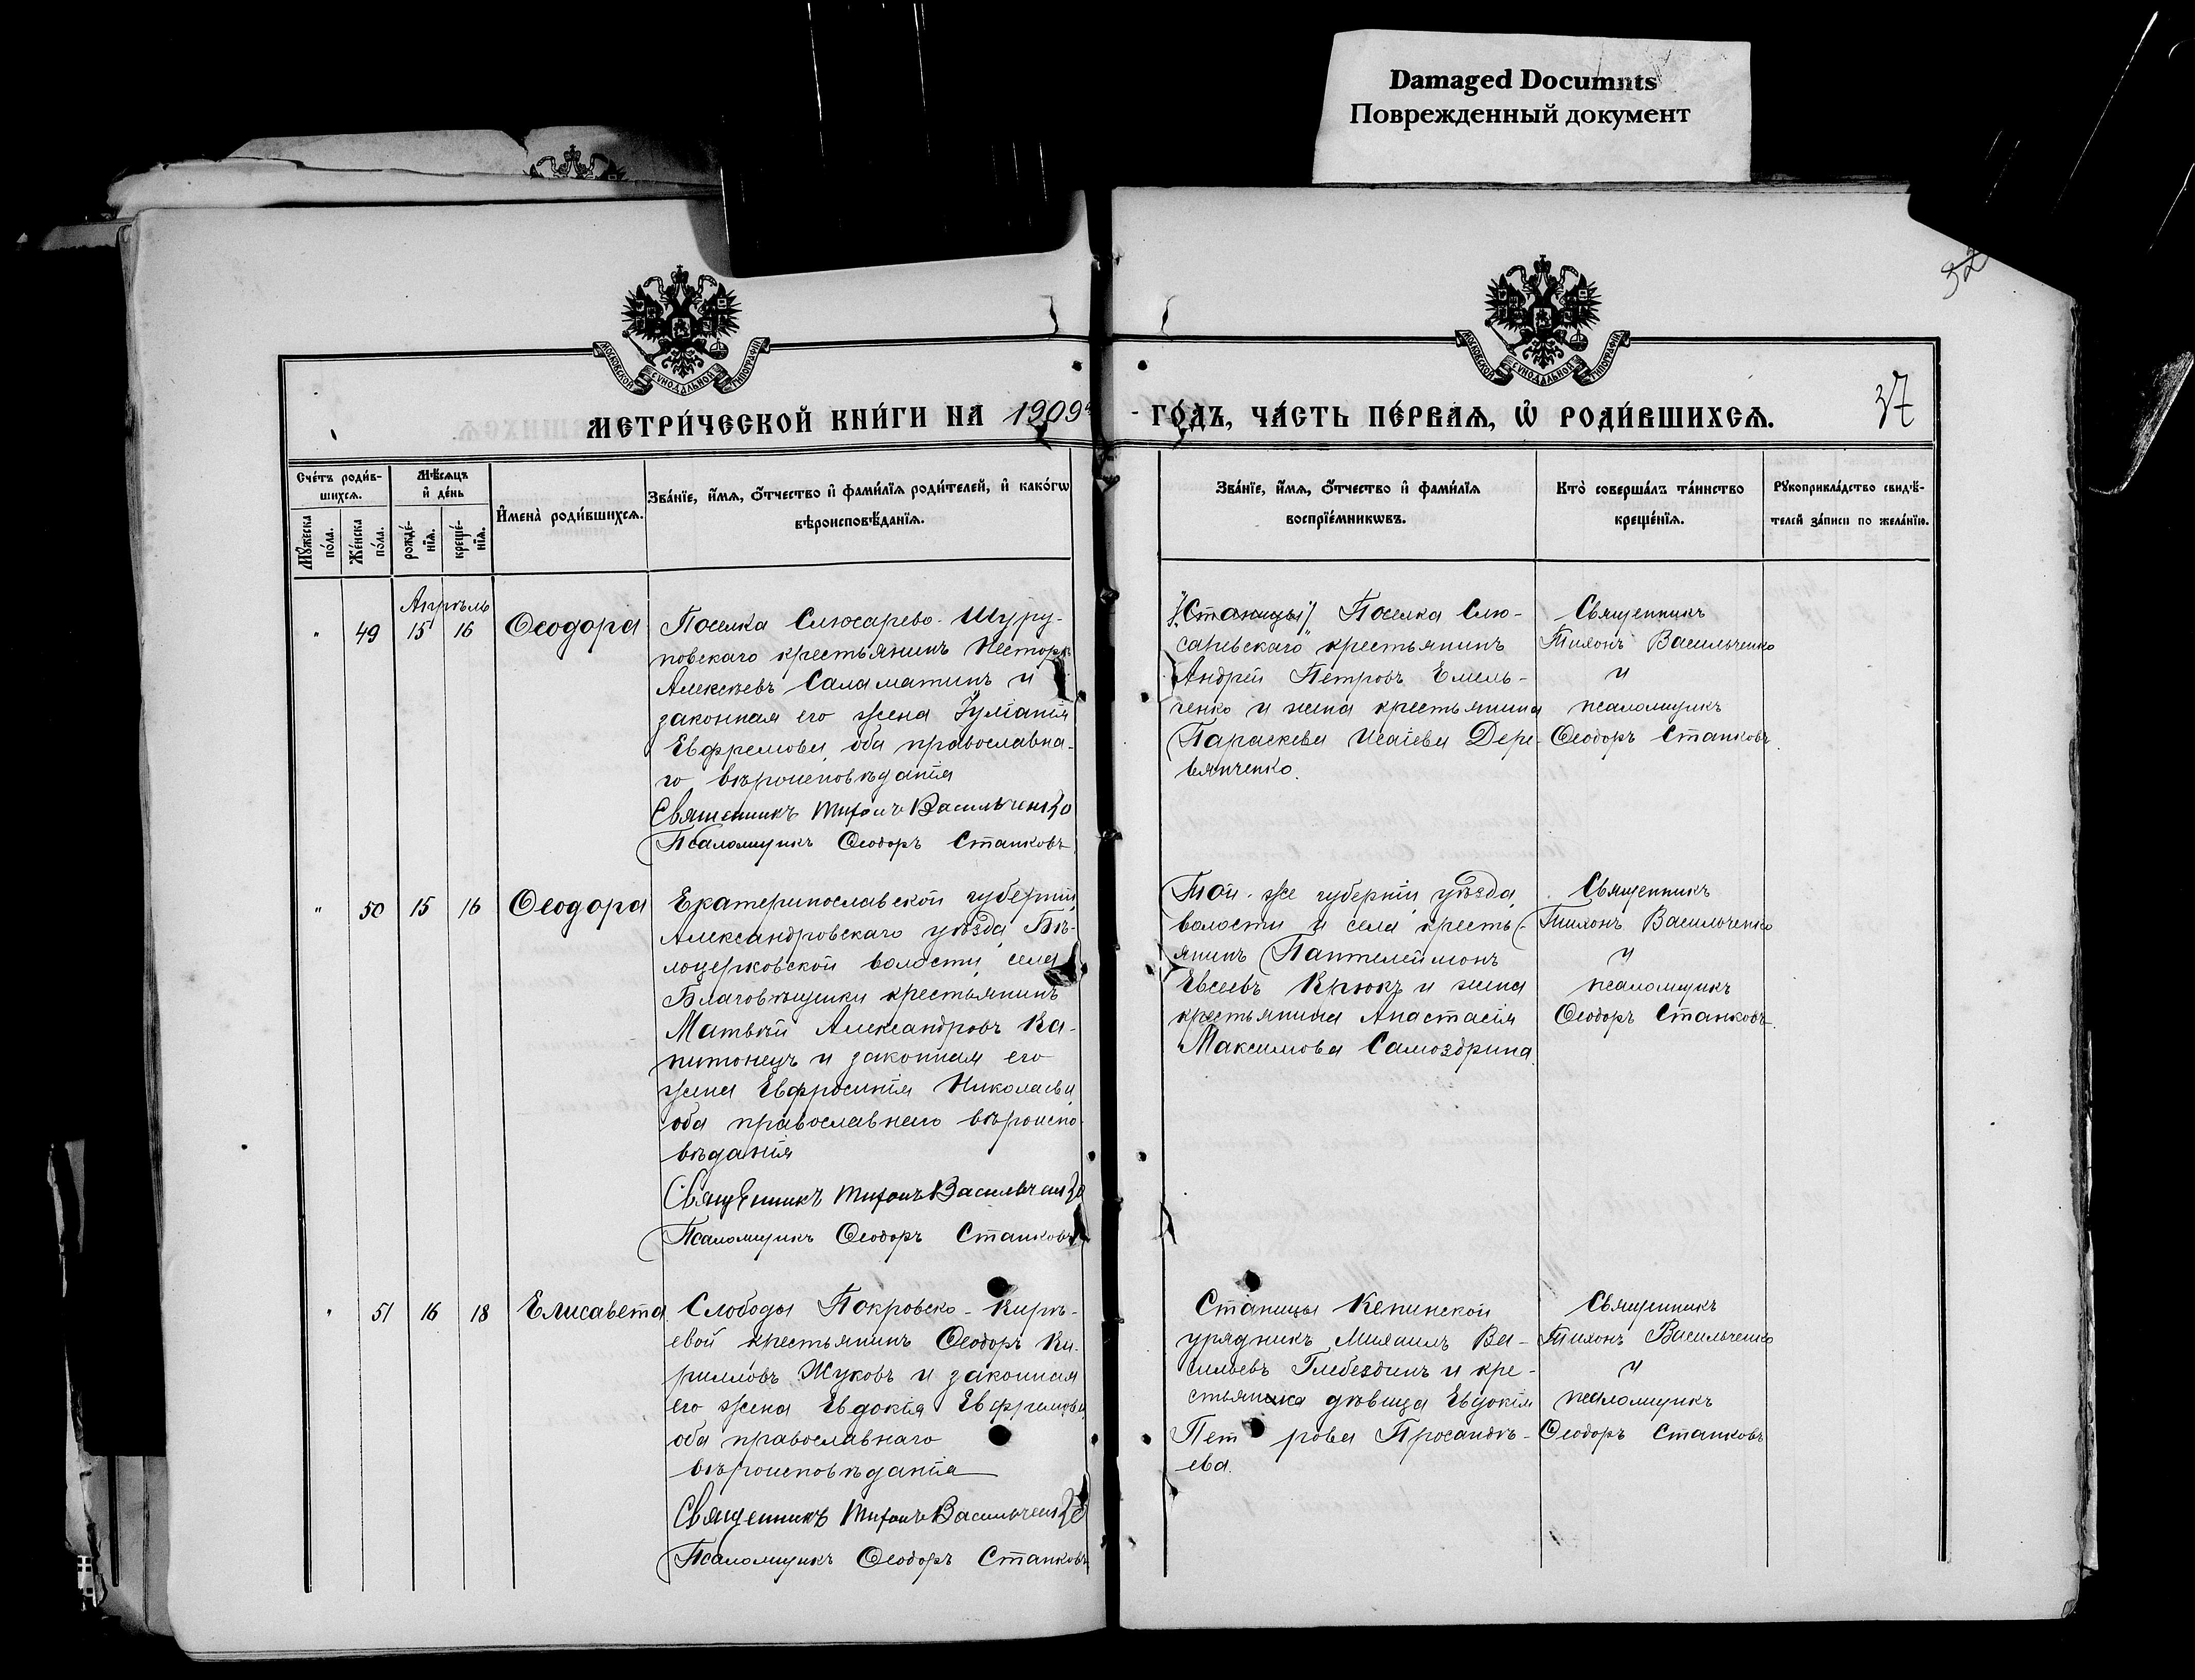 Damaged Documnts
Поврежденный документ
32
МОСКОВСКОЙ СѴНОДАЛЬНОЙ ТИПОГРАФІИ
МОСКОВСКОЙ СѴНОДАЛЬНОЙ ТИПОГРАФІИ
МЕТРИ́ЧЕСКОЙ КНИ́ГИ НА 1909й
ГО́ДЪ, ЧА́СТЬ ПЕ́РВАѦ, Ѡ҆ РОДИ́ВШИХСѦ.
37
Сче́тъ роди́в-
шихсѧ.
Мꙋ́жеска по́ла.
Же́нска по́ла.
Мѣ́сѧцъ
и҆ де́нь
рожде́-
нїѧ.
креще́-
нїѧ.
И҆мена̀ роди́вшихсѧ.
Зва́нїе, и҆́мѧ, ѻ҆́тчество и҆ фами́лїѧ роди́телей, и҆ како́гѡ
вѣроисповѣ́данїѧ.
Зва́нїе, и҆́мѧ, ѻ҆́тчество и҆ фами́лїѧ
воспрїе́мникѡвъ.
Кто̀ соверша́лъ та́инство
креще́нїѧ.
Рꙋкоприкла́дство свидѣ́-
телей за́писи по жела́нїю.
Апрѣль
" 49 15 16 Ѳеодора
Поселка Слюсарево-Шуру-
повскаго крестьянинъ Несторъ
Алексѣевъ Саламатинъ и
законная его жена Іуліанія
Евфремова, оба православна-
го вѣроисповѣданія
Священникъ Тихонъ Васильченко
Псаломщикъ Ѳеодоръ Станковъ
"/Станицы/ Поселка Слю-
саревскаго" крестьянинъ
Андрей Петровъ Емель-
ченко и жена крестьянина
Параскева Исаіева Дере-
вянченко.
Священникъ
Тихонъ Васильченко
и
псаломщикъ
Ѳеодоръ Станковъ.
" 50 15 16 Ѳеодора
Екатеринославской губерніи,
Александровскаго уѣзда, Бѣ-
лоцерковской волости, села
Благовѣщенки крестьянинъ
Матвѣй Александровъ Ка-
питонецъ и законная его
жена Евфросинія Николаева,
оба православнаго вѣроиспо-
вѣданія
Священникъ Тихонъ Васильченко
Псаломщикъ Ѳеодоръ Станковъ
Той-же губерніи, уѣзда,
волости и села кресть-
янинъ Пантелеймонъ
Евсеевъ Крюкъ и жена
крестьянина Анастасія
Максимова Самоздрина
Священникъ
Тихонъ Васильченко
и
псаломщикъ
Ѳеодоръ Станковъ.
" 51 16 18 Елисавета
Слободы Покровско-Кирѣ-
евой крестьянинъ Ѳеодоръ Ки-
рилловъ Жуковъ и законная
его жена Евдокія Евфремова,
оба православнаго
вѣроисповѣданія
Священникъ Тихонъ Васильченко
Псаломщикъ Ѳеодоръ Станковъ
Станицы Кепинской
урядникъ Михаилъ Ва-
сильевъ Глебездинъ и кре-
стьянка дѣвица Евдокія
Петрова Просандѣ-
ева.
Священникъ
Тихонъ Васильченко
и
псаломщикъ
Ѳеодоръ Станковъ